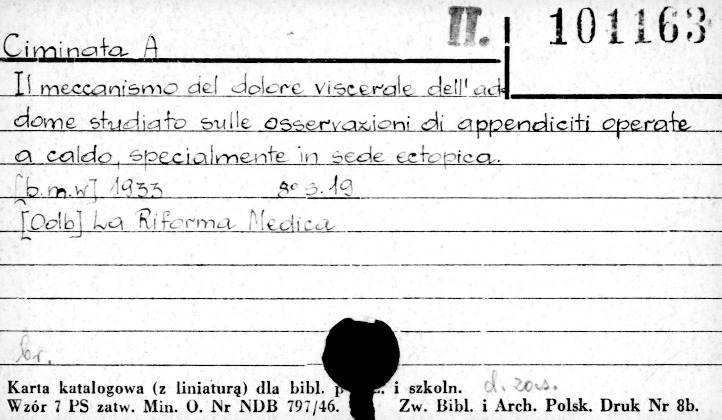 II. 101163
Ciminata A
Il meccanismo del dolore viscerale dell'ad
dome studiato sulle osservazioni di appendiciti operate
a caldo, specialmente in sede ectopica.
[b.m.w] 1933 8° s. 19
[Odb] La Riforma Medica
br.
Karta katalogowa (z liniaturą) dla bibl. i szkoln. d. zows.
Wzór 7 PS zatw. Min. O. Nr NDB 797/46. Zw. Bibl. i Arch. Polsk. Druk Nr 8b.